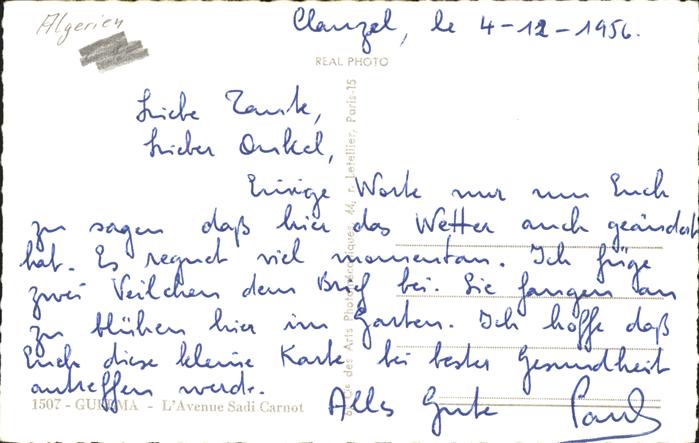 Algerien
Clauzel, le 4-12-1956.
REAL PHOTO
Liebe Tante,
Lieber Onkel,
Einige Worte nur um Euch
zu sagen daß hier das Wetter auch geändert
hat. Es regnet viel momentan. Ich füge
zwei Veilchen dem Brief bei. Sie fangen an
zu blühen hier im Garten. Ich hoffe daß
Euch diese kleine Karte bei bester Gesundheit
antreffen werde.
Alles Gute Paul
1507 - GUELMA - L'Avenue Sadi Carnot
des Arts Photomécaniques, 44, r. Letellier, Paris-15